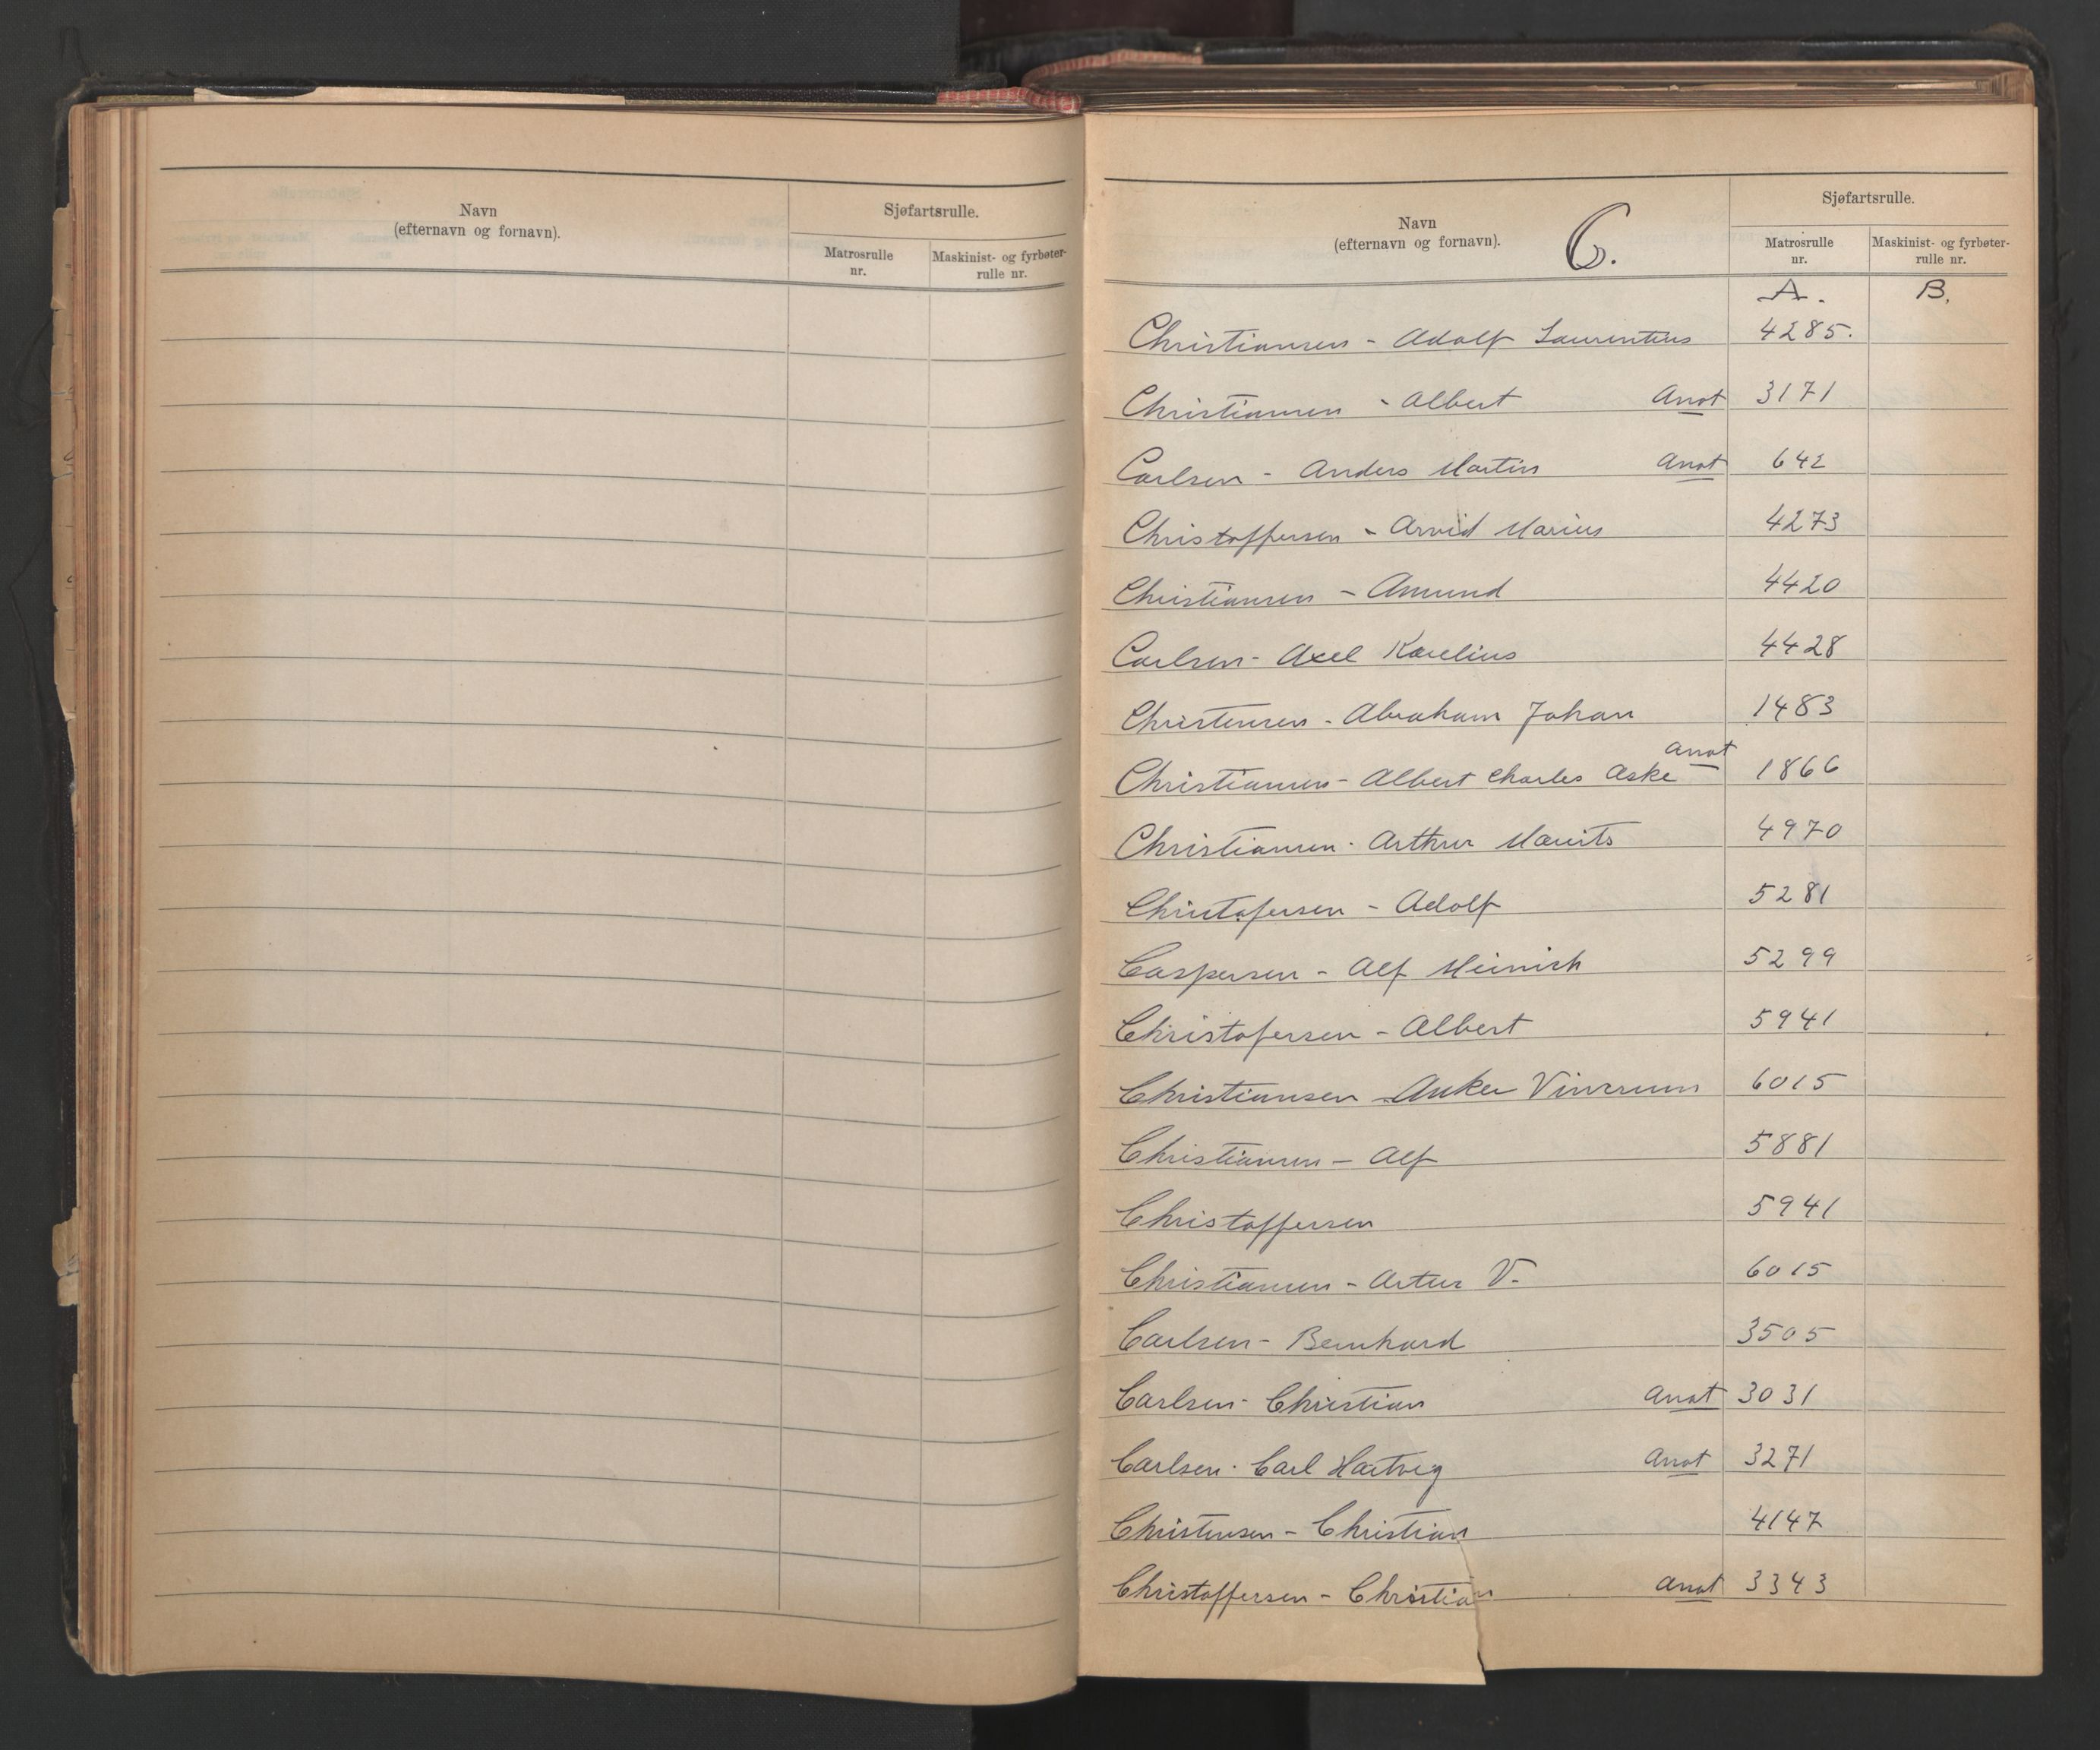 Navn
(efternavn og fornavn).
Sjøfartsrulle.
Matrosrulle
nr.
Maskinist- og fyrbøter-
rulle nr.
Navn
(efternavn og fornavn).
C.
Sjøfartsrulle.
Matrosrulle
nr.
Maskinist- og fyrbøter-
rulle nr.
A. B.
Christiansen - Adolf Laurentius 4285.
Christiansen - Albert Anot 3171
Carlsen - Anders Martin Anot 642
Christoffersen - Arvid Marius 4273
Christiansen - Amund 4420
Carlsen - Axel Karelius 4428
Christensen - Abraham Johan 1483
Christiansen - Albert Charles Aske Anot 1866
Christiansen - Arthur Mauits 4970
Christofersen - Adolf 5281
Caspersen - Alf Meinich 5299
Christofersen - Albert 5941
Christiansen - Anker 6015
Christiansen - Alf 5881
Christoffersen 5941
Christiansen - Artur V. 6015
Carlsen - Bernhard 3505
Carlsen - Christian Anot 3031
Carlsen - Carl Hartvig Anot 3271
Christensen - Christian 4147
Christoffersen - Christian Anot 3343